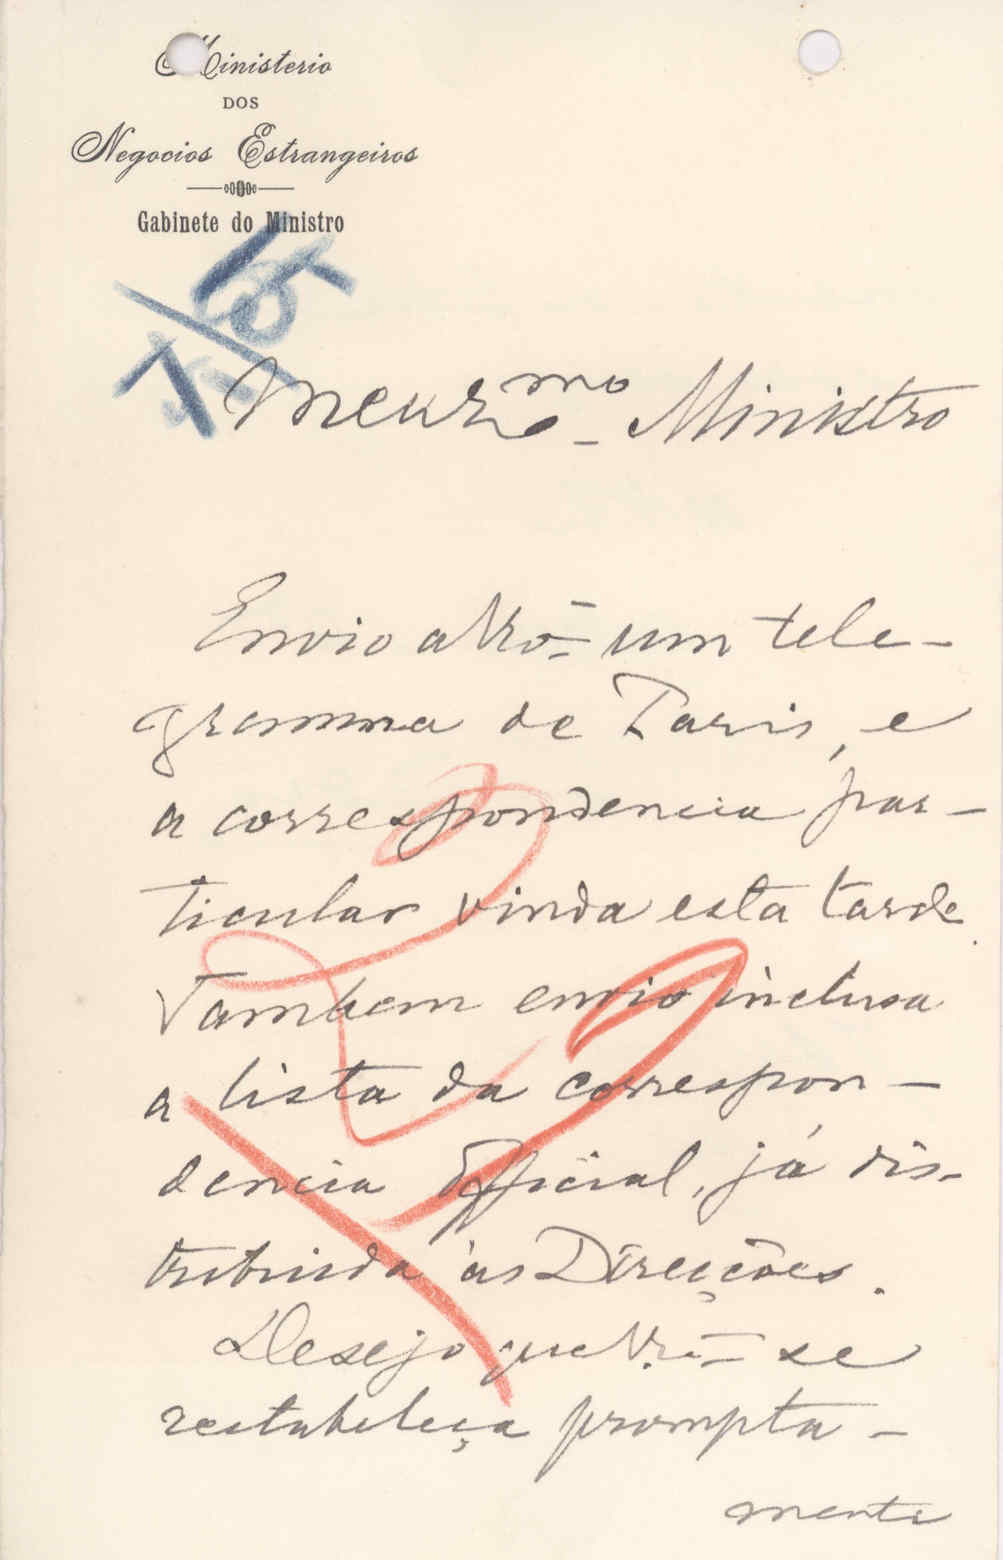 Ministerio
DOS
Negocios Estrangeiros
Gabinete do Ministro
Meu Exmo. Ministro
Envio a Vexª um tele-
gramma de Paris, e
a correspondencia par-
ticular vinda esta tarde.
Tambem envio inclusa
a lista da correspon-
dencia official, já dis-
tribuida ás Direcções.
Desejo que Vexª se
restabeleça prompta-
mente